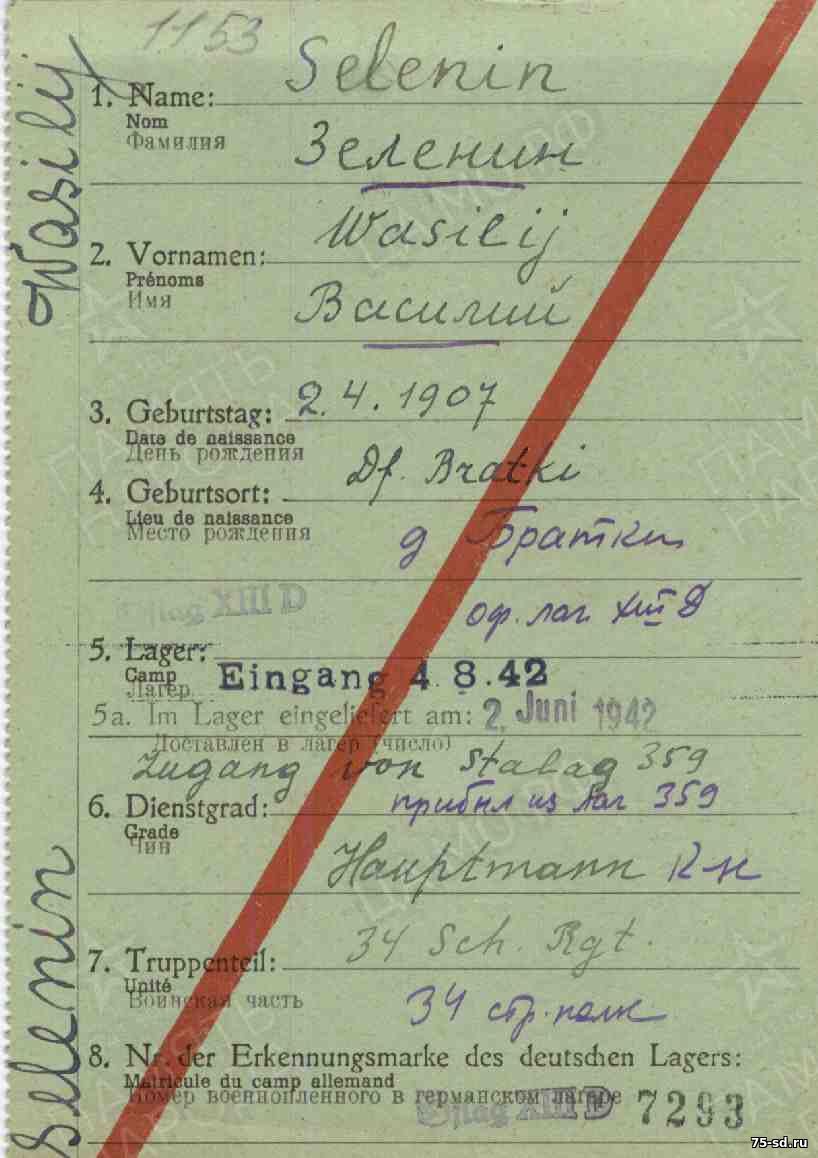 1153
Wasilij
Selenin
1. Name: Selenin
Nom
Фамилия
Зеленин
2. Vornamen: Wasilij
Prénoms
Имя
Василий
3. Geburtstag: 2.4.1907
Date de naissance
День рождения
4. Geburtsort: Df. Bratki
Lieu de naissance
Место рождения
д Братки
Oflag XIII D
оф. лаг XIII D
5. Lager:
Camp
Лагер
Eingang 4.8.42
5a. Im Lager eingeliefert am: 2. Juni 1942
Доставлен в лагер (число)
Zugang von Stalag 359
прибыл из лаг 359
6. Dienstgrad:
Grade
Чин
Hauptmann к-н
7. Truppenteil: 34 Sch. Rgt.
Unité
Воинская часть
34 стр. полк
8. Nr. der Erkennungsmarke des deutschen Lagers:
Matricule du camp allemand
Номер военнопленного в германском лагере
Oflag XIII D 7293
75-sd.ru